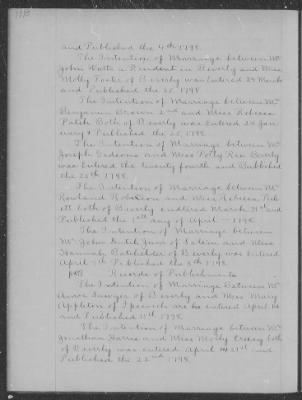 and Published the 4th 1798.
The Intention of Marriage between Mr
John Watts a Resident in Beverly and Miss
Molly Foster of Beverly was Entered 24 March
and Published the 25 1798
The Intention of Marriage between Mr
Benjamin Brown 2nd and Miss Rebecca
Patch Both of Beverly was Entered 24
& Published the 25, 1798.
The Intention of Marriage between Mr
Joseph and Miss Polly Rea Beverly
was entered the twenty fourth and Published
the 25th 1798.
The Intention of Marriage between Mr
Rowland and Miss Rebecca
both of Beverly entered March 31st and
Published the 1st day of April 1798.
The Intention of Marriage between
Mr John of Salem and Miss
Hannah Batchelder of Beverly was Entered
April 7th Published the 8th 1798.
Records of Publishments
The Intention of Marriage Between Mr
Aaron Sawyer of Beverly and Miss Mary
Appleton of Ipswich are he Entered April 14
and Published 15th 1798.
The Intention of Marriage between Mr
Jonathan Harris and Miss Molly Creesy both
of Beverly was entered April 21st and
Published the 22nd 1798.